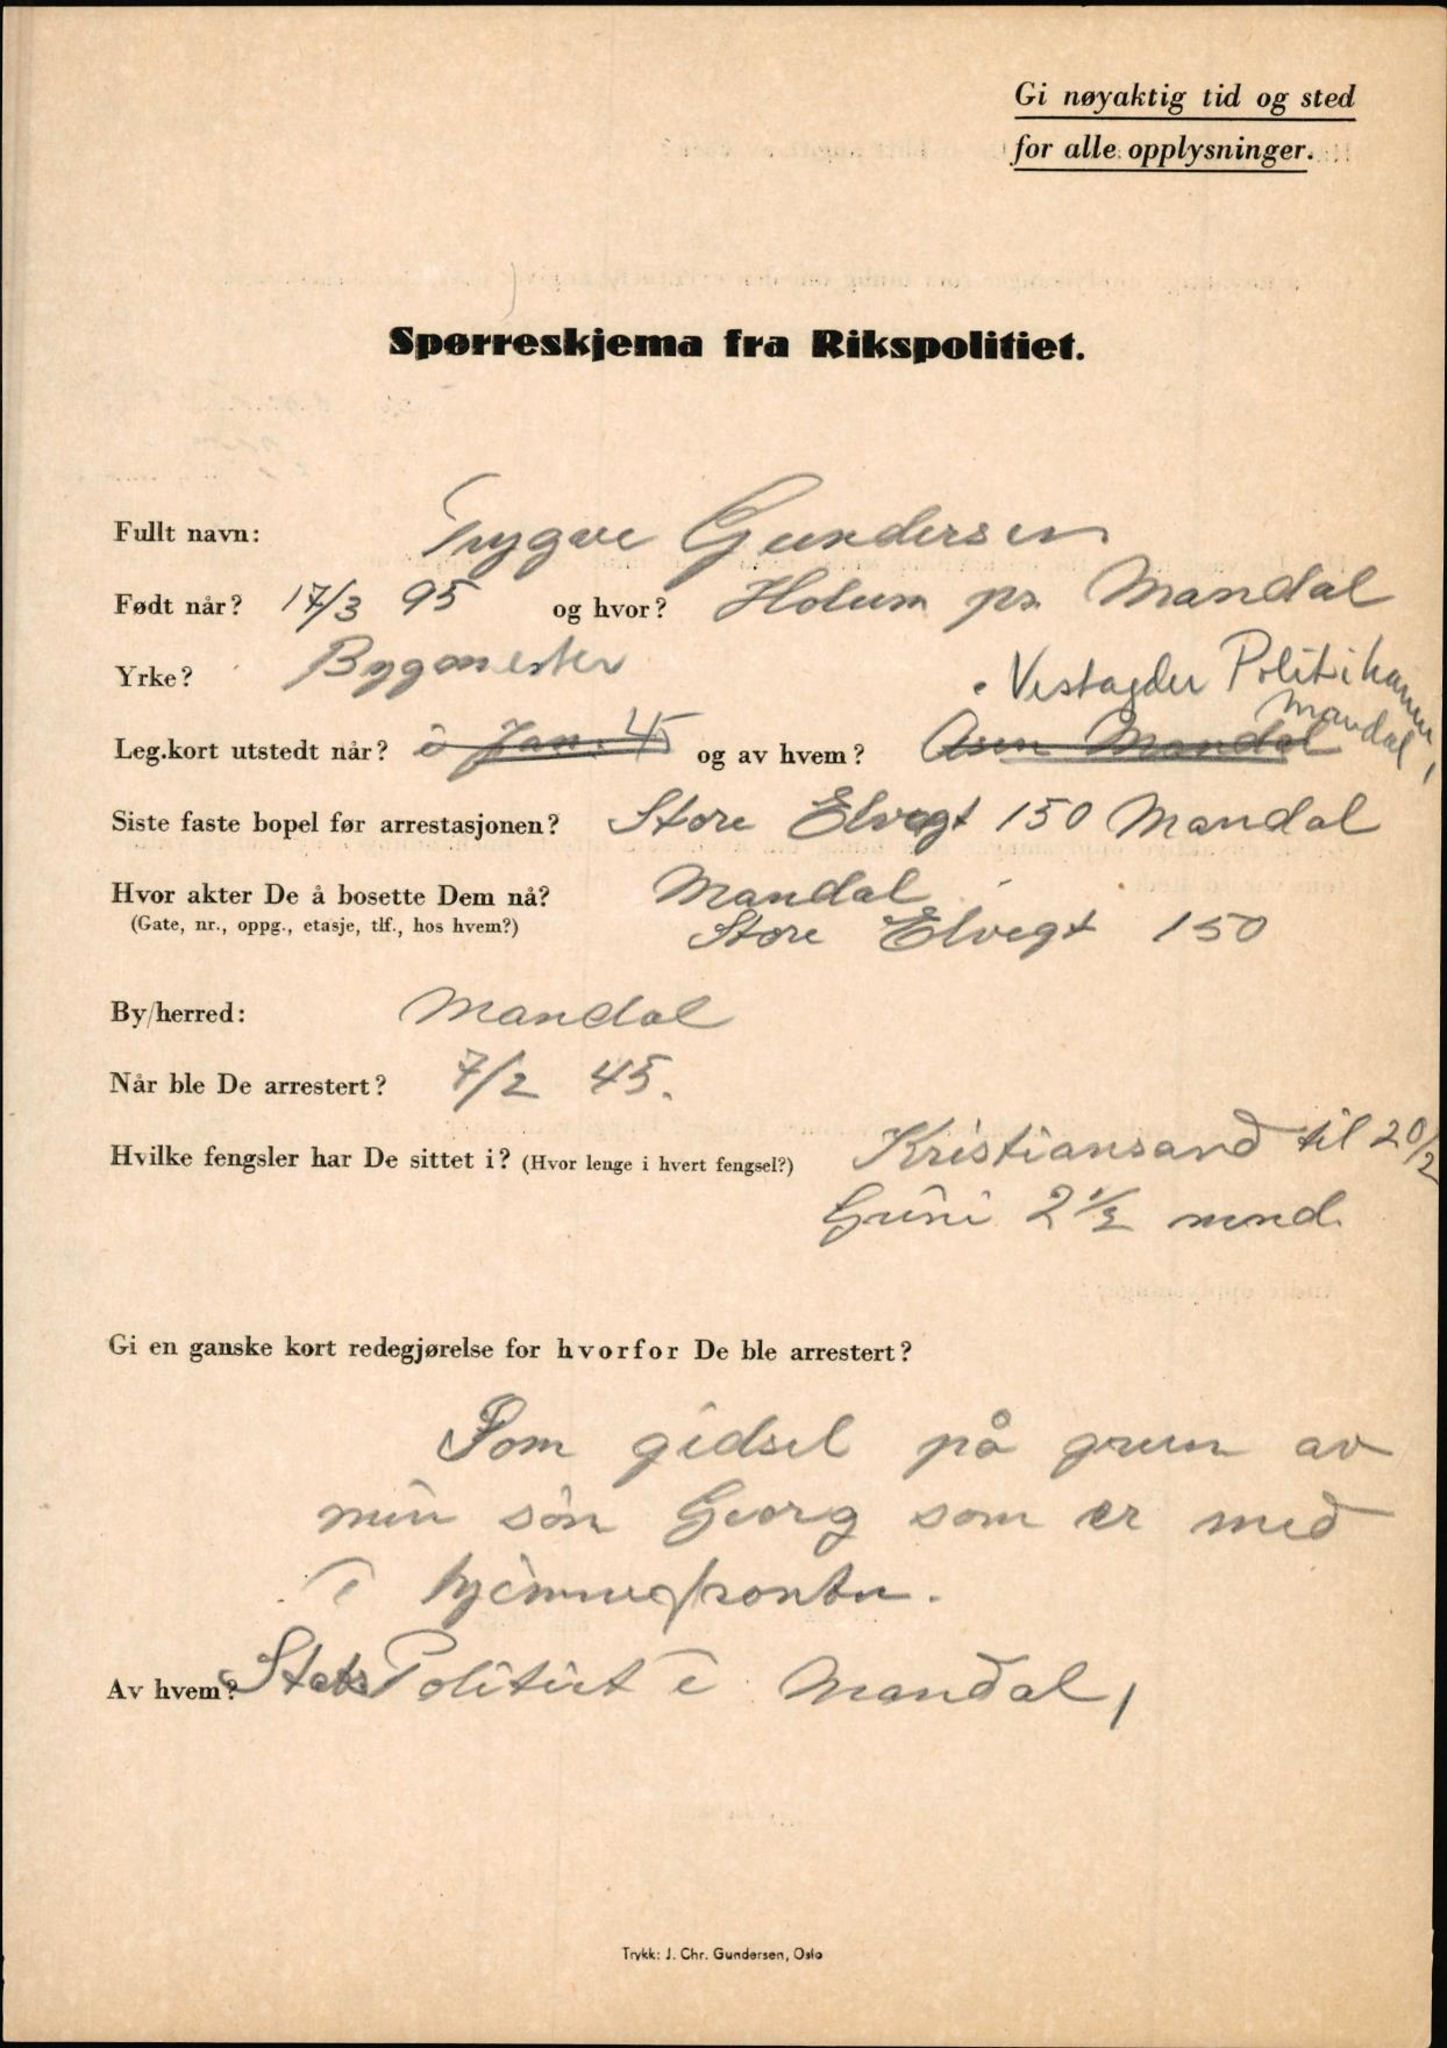 Gi nøyaktig tid og sted
for alle opplysninger.
Spørreskjema fra Rikspolitiet.
Fullt navn: Trygve Gundersen
Født når? 17/3 95 og hvor? Holum pr. Mandal
Yrke? Bygmester
Vestagder Politikamer, Mandal
Leg.kort utstedt når? i Jan. 45 og av hvem? Mandal
Siste faste bopel før arrestasjonen? Store Elvegt 150 Mandal
Hvor akter De å bosette Dem nå? Mandal
(Gate, nr., oppg., etasje, tlf., hos hvem?) Store Elvegt 150
By/herred: Mandal
Når ble De arrestert? 7/2 45.
Hvilke fengsler har De sittet i? (Hvor lenge i hvert fengsel?) Kristiansand til 20/2
Grini 2 1/2 mnd.
Gi en ganske kort redegjørelse for hvorfor De ble arrestert?
Som gidsel på grun av
min søn Georg som er med
i hjemmefronten.
Av hvem? Stats Politiet i Mandal,
Trykk: J. Chr. Gundersen, Oslo